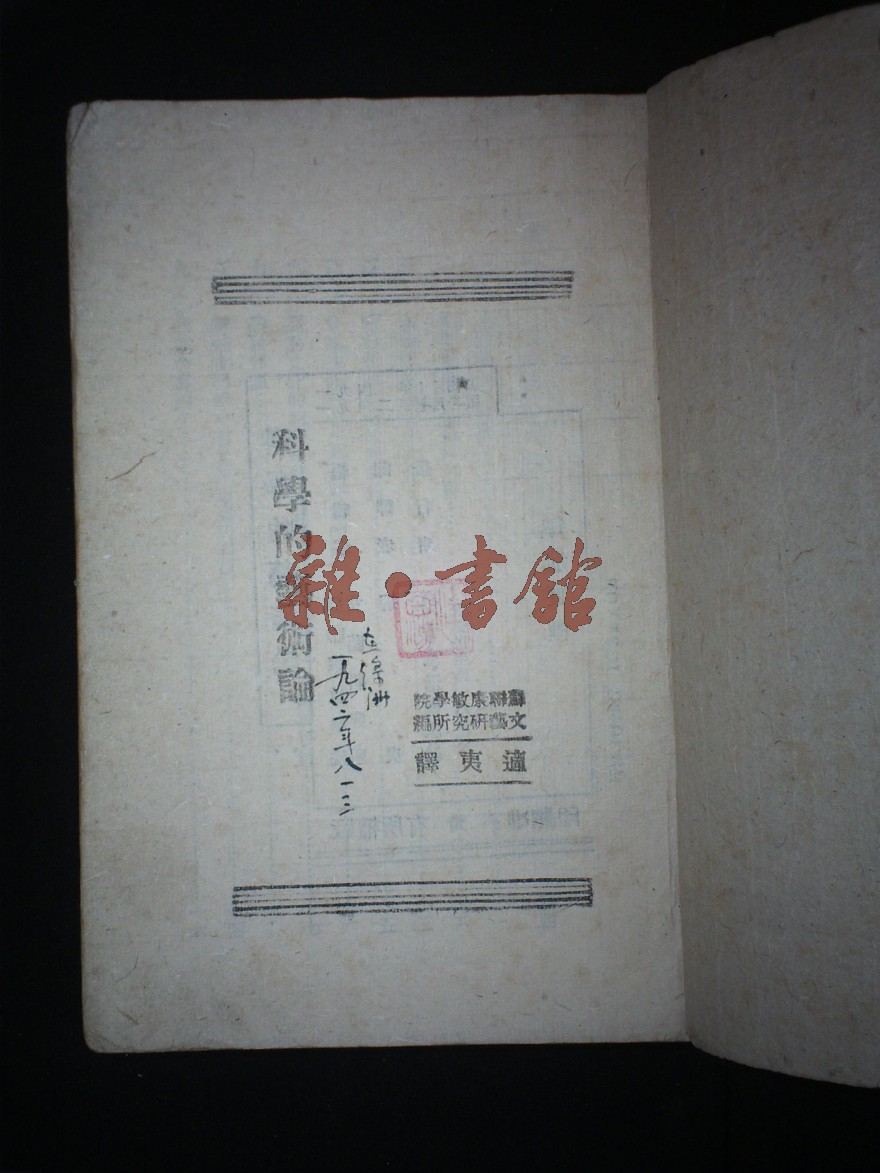 科學的藝術論
雜·書館
蘇聯康敏學院
文藝研究所編
適夷譯
一九四年八